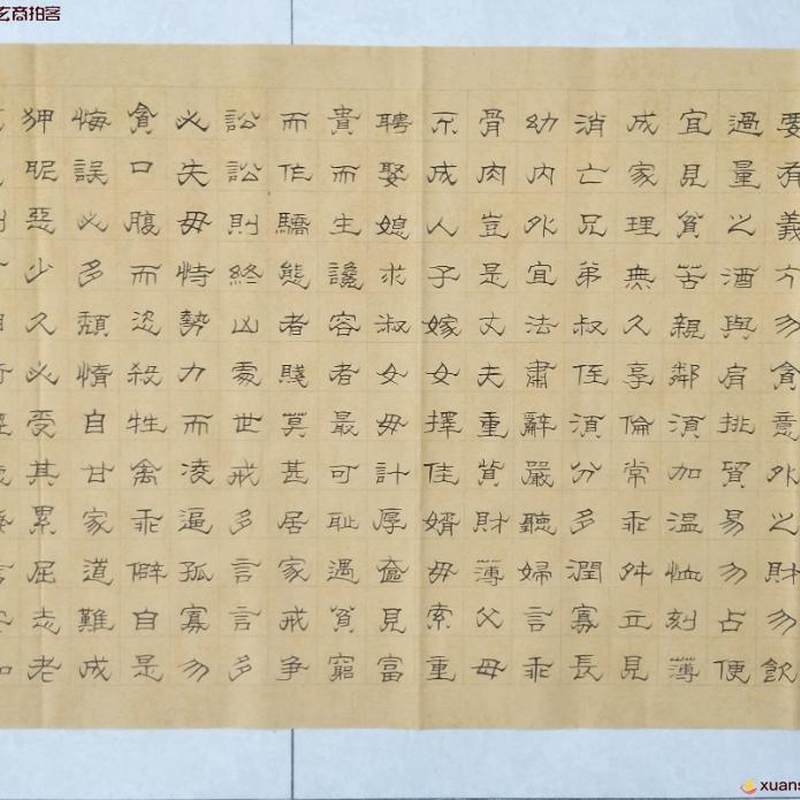 玄商拍客
要有義方勿貪意外之財勿飲
過量之酒與肩挑貿易勿占便
宜見貧苦親鄰須加温恤刻薄
成家理無久享倫常乖舛立見
消亡兄弟叔侄須分多潤寡長
幼内外宜法肅辭嚴聽婦言乖
骨肉豈是丈夫重貲財薄父母
不成人子嫁女擇佳婿毋索重
聘娶媳求淑女毋計厚奩見富
貴而生讒容者最可耻遇貧窮
而作驕態者賤莫甚居家戒争
訟訟則終凶處世戒多言言多
必失毋恃勢力而凌逼孤寡勿
貪口腹而恣殺牲禽乖僻自是
悔誤必多頹惰自甘家道難成
狎昵惡少久必受其累屈志老
xuans